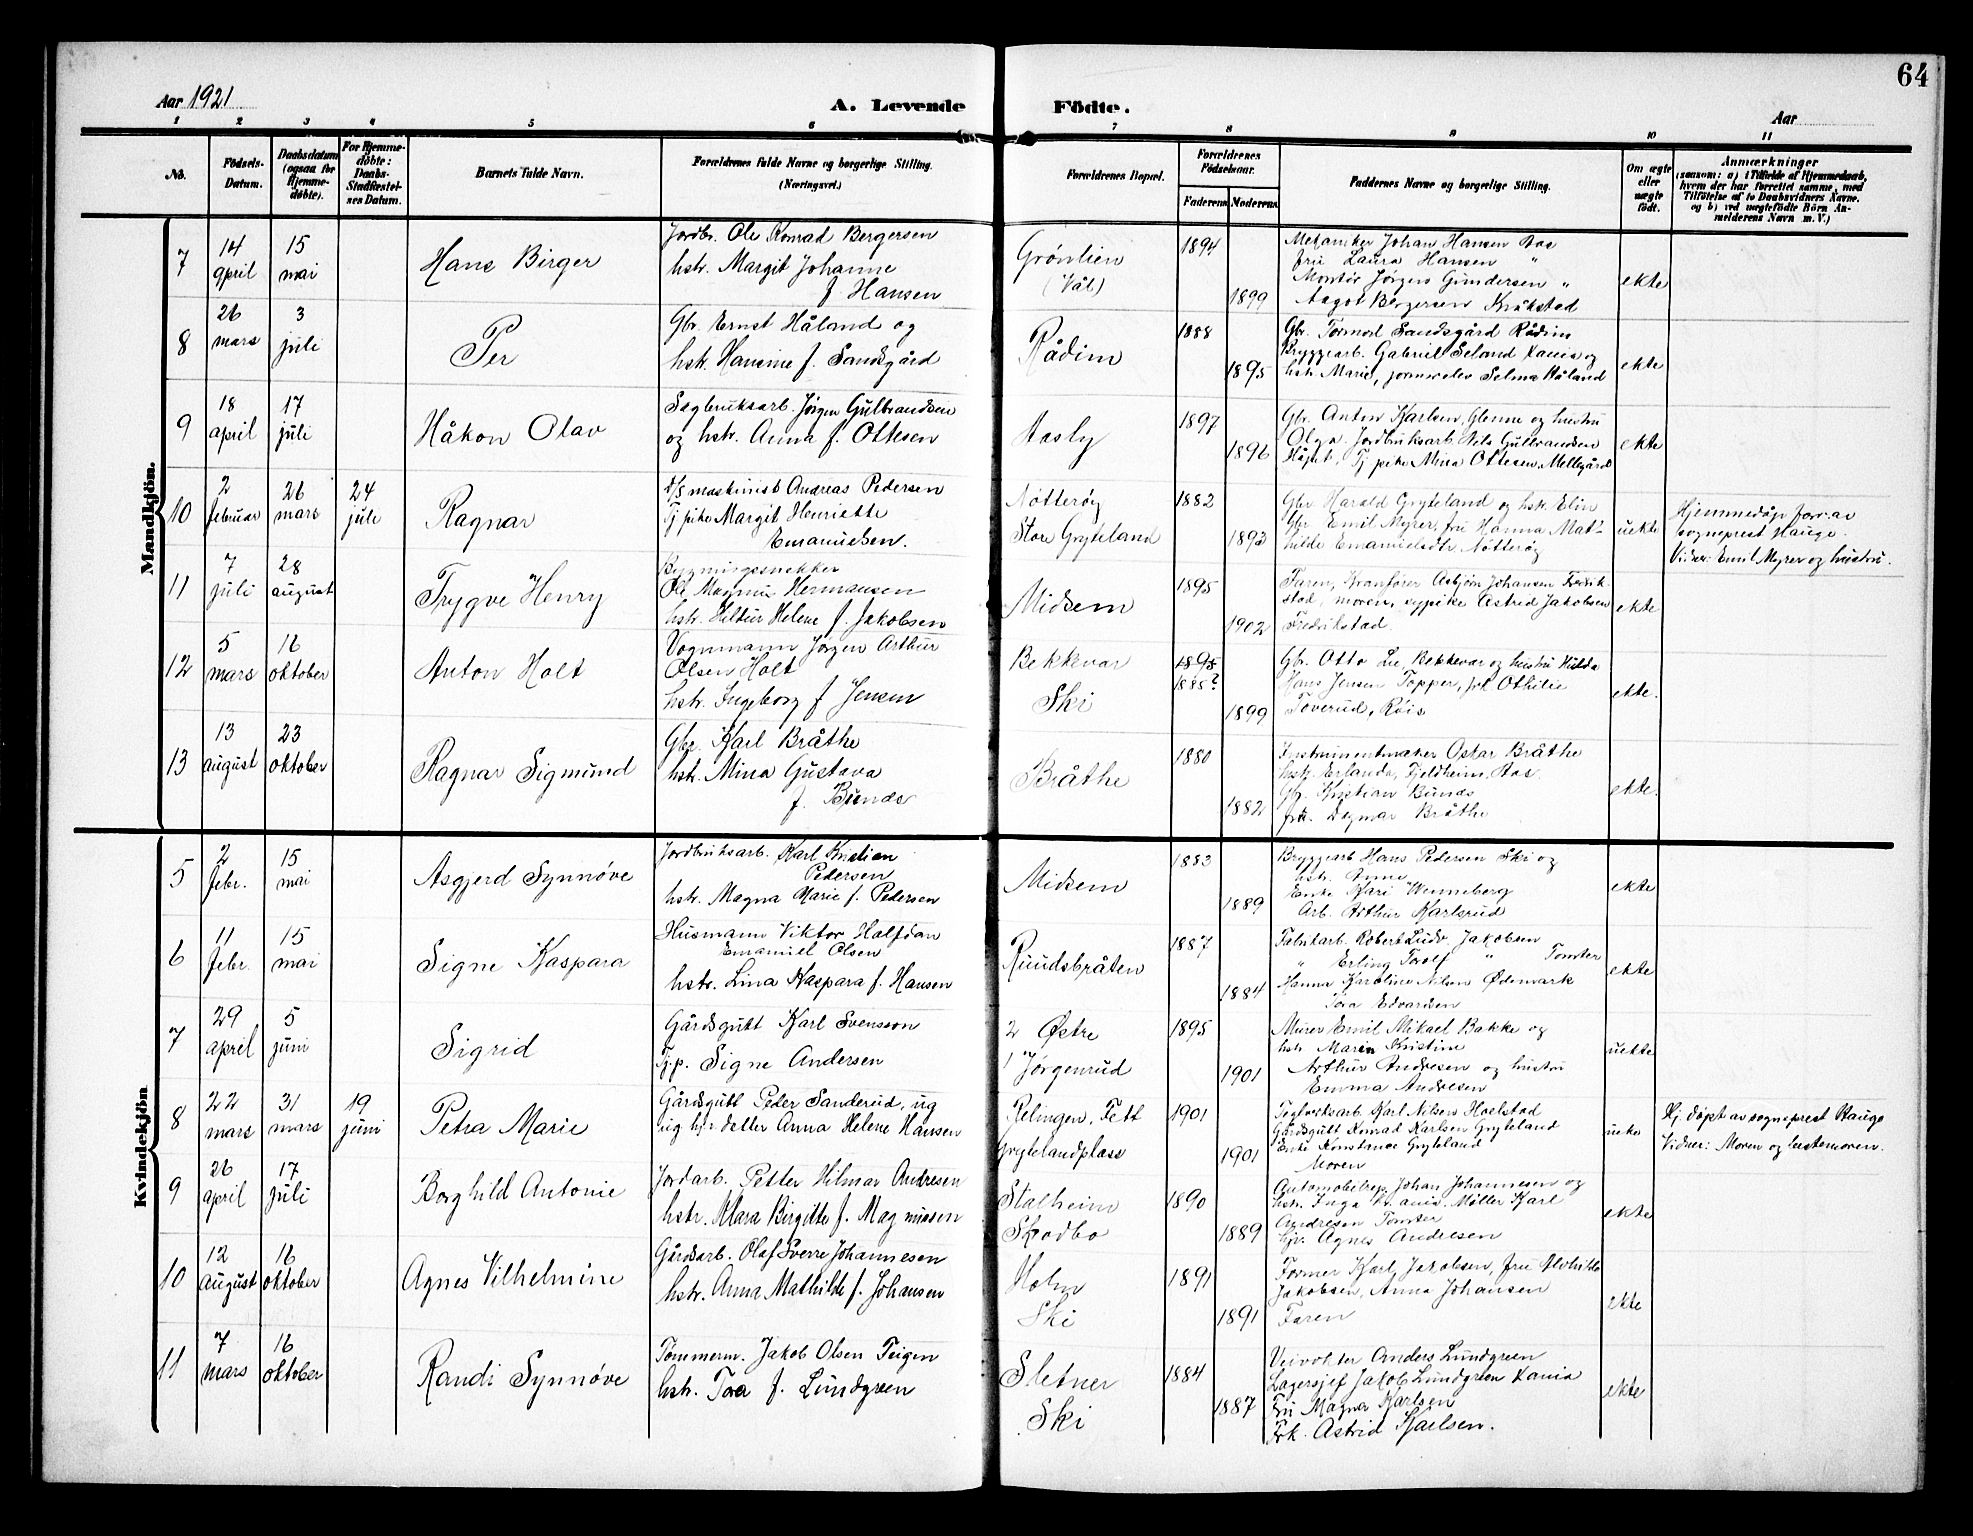 64
Aar 1921
A. Levende Födte.
Aar
1 2 3 4 5 6 7 8 9 10 11
No.
Födsels-Datum.
Daabsdatum (ogsaa for Hjemmedöbte).
For Hjemmedöbte: Daabs-Stadfæstelses Datum.
Barnets fulde Navn.
Forældrenes fulde Navne og borgerlige Stilling. (Næringsvei.)
Forældrenes Bopæl.
Forældrenes Födselsaar.
Faderens Moderens
Faddernes Navne og borgerlige Stilling.
Om ægte eller uægte födt.
Anmærkninger
(saasom: a) i Tilfælde af Hjemmedaab,
hvem der har forrettet samme, med
Tilföielse af to Daabsvidners Navne.
og b) ved uægtefödte Börn An-
melderens Navn m. V.)
Mandkjön.
7
14 april
15 mai
Hans Birger
Jordbr. Ole Konrad Bergersen
hstr. Margit Johanne
f. Hansen
Grønlien
(Våk)
1894
1899
Mekaniker Johan Hansen Aas
fru Laura Hansen "
Montør Jørgen Gundersen "
Aagot Bergersen Kråkstad
ekte
8
26 mars
3 juli
Per
Gbr. Ernst Håland og
hstr. Hansine f. Sandsgård
Rådim
1888
1895
Gbr. Tormod Sandsgård Rådim
Bryggearb. Gabriel Seland Kania og
hstr Marie, Selma Håland
ekte
9
18 april
17 juli
Håkon Olav
Sagbruksarb. Jørgen Gulbrandsen
og hstr. Anna f. Ottesen
Aasly
1897
1896
Gbr. Anton Karlsen, Glenne og hustru
Olga. Jordbruksarb Nils Gulbrandsen
Tj pike Mina Ottesen, Mellegård
ekte
10
2 februar
26 mars
24 juli
Ragnar
d/s maskinist Andreas Pedersen
Tj pike Margit Henriette
Emanuelsen.
Nøtterøy
Store Gryteland
1882
1893
Gbr Harald Gryteland og hstr. Elin
Gbr Emil Myrer, fru Hanna Mat-
hilde Emanuelsdtr Nøtterøy
uekte
Hjemmedøp forr. av
sogneprest Hauge.
Vidner: Emil Myrer og hustru.
11
7 juli
28 august
Trygve Henry
Bygningssnekker
Ole Magnus Hermansen
hstr. Hildur Helene f. Jakobsen
Midsem
1895
1902
Faren, Kranfører Asbjørn Johansen Fredrik-
stad, moren, sypike Astrid Jakobsen
Fredrikstad.
ekte
12
5 mars
16 oktober
Anton Holt
Vognmann Jørgen Arthur
Olsen Holt
hstr. Ingeborg f Jensen
Bekkevar
Ski
1895
1885?
1899
Gbr. Otto Lie, Bekkevar og hustru Hilda
Hans Jensen Topper, frk Othilie
Toverud, Røis
ekte.
13
13 august
23 oktober
Ragnar Sigmund
Gbr. Karl Bråthe
hstr. Mina Gustava
f. Bunds
Bråthe
1880
1882
Instrumentmaker Oskar Bråthe
hstr. Erlanda, Fjeldheim, Aas
Gbr. Kristian Bunds
frk. Dagmar Bråthe
ekte.
Kvindekjön
5
2 febr.
15 mai
Asgjerd Synnøve
Jordbruksarb. Karl Kristian
Pedersen
hstr. Magna Marie f. Pedersen
Midsem
1883
1889
Bryggearb Hans Pedersen Ski og
hstr. Anna
Enke Kari Wenneberg
Arb. Arthur Karlsrud
ekte
6
11 febr.
15 mai
Signe Kaspara
Husmann Viktor Halfdan
Emanuel Olsen
hstr. Lina Kaspara f. Hansen
Ruudsbråten
1887
1884
Fabrikarb. Robert Ludv. Jakobsen
" Erling Torolf " Tomter
Hanna Karoline Nilsen Ødemark
Tora Edvardsen
ekte
7
29 april
5 juni
Sigrid
Gårdsgutt Karl Svensson
Tj.p. Signe Andersen
2 Østre
1 Jørgenrud
1895
1901
Murer Emil Mikael Bakke og
hstr Maren Kristine
Arthur Andresen og hustru
Emma Andresen
uekte
8
22 mars
31 mars
19 juni
Petra Marie
Gårdsgutt Peder Sanderud, ug
ug hj.v datter Anna Helene Hansen
Relingen, Fett
Grytelandplass
1901
1901
Teglverksarb Karl Nilsen Hoelstad
Gårdsgutt Konrad Karlsen Gryteland
Enke Konstance Gryteland
Moren
Hj. døpt av sogneprest Hauge
Vidner: Moren og bestemoren.
9
26 april
17 juli
Borghild Antonie
Jordarb. Petter Hilmar Andresen
hstr. Klara Birgitte f. Magnussen
Stalheim
Skodbo
1890
1889
Automobilrep Johan Johannessen og
hstr. Inga Kr.ania. Møller Karl
Andresen Tomter
Agnes Andresen
ekte
10
12 august
16 oktober
Agnes Vilhelmine
Gårdsarb. Olaf Sverre Johannesen
hstr. Anna Mathilde f. Johansen
Holm
Ski
1891
1891
Former Karl Jakobsen, fru Alvhilde
Jakobsen, Anna Johansen
Faren
ekte
11
7 mars
16 oktober
Randi Synnøve
Tømmerm. Jakob Olsen Teigen
hstr. Tora f. Lundgreen
Sletner
Ski
1884
1887
Veivokter Anders Lundgreen
Lagersjef Jakob Lundgreen Kania
Fru Magna Karlsen
Frk. Astrid Karlsen.
ekte